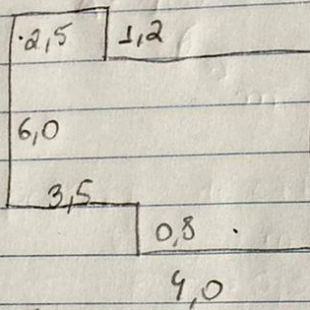 2,5 1,2
6,0
3,5
0,8
4,0